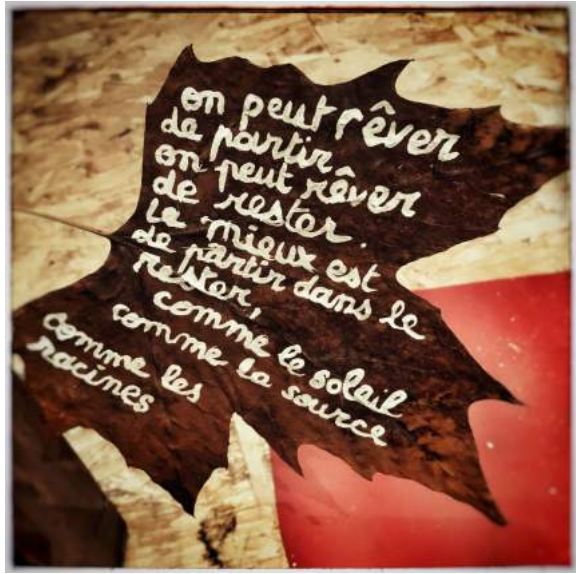 on peut rêver
de partir
on peut rêver
de rester.
le mieux est
de partir dans le
rester,
comme le soleil
comme la source
comme les
racines